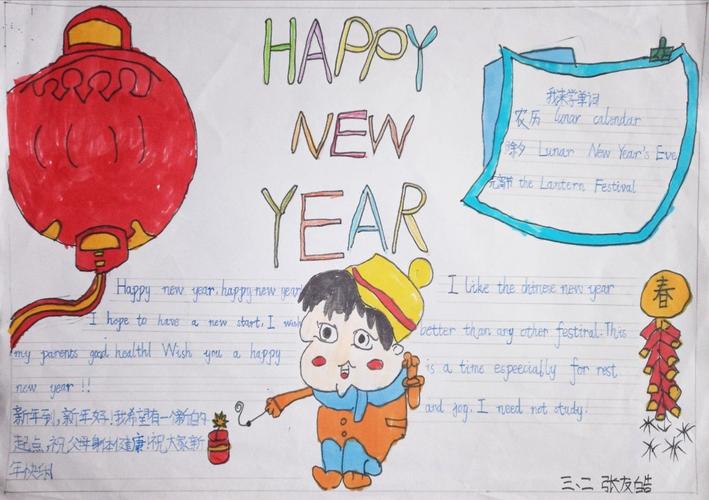 HAPPY
NEW
YEAR
我来学单词
农历 lunar calendar
除夕 Lunar New Year's Eve
元宵节 the Lantern Festival
Happy new year, happy new year
I hope to have a new start, I wish
my parents good health! Wish you a happy
new year !!
新年到,新年好!我希望有一个新的
起点,祝父母身体健康!祝大家新
年快乐!
I like the chinese new year
better than any other festiral. This
is a time especially for rest
and joy. I need not study.
春
三、二 张友皓